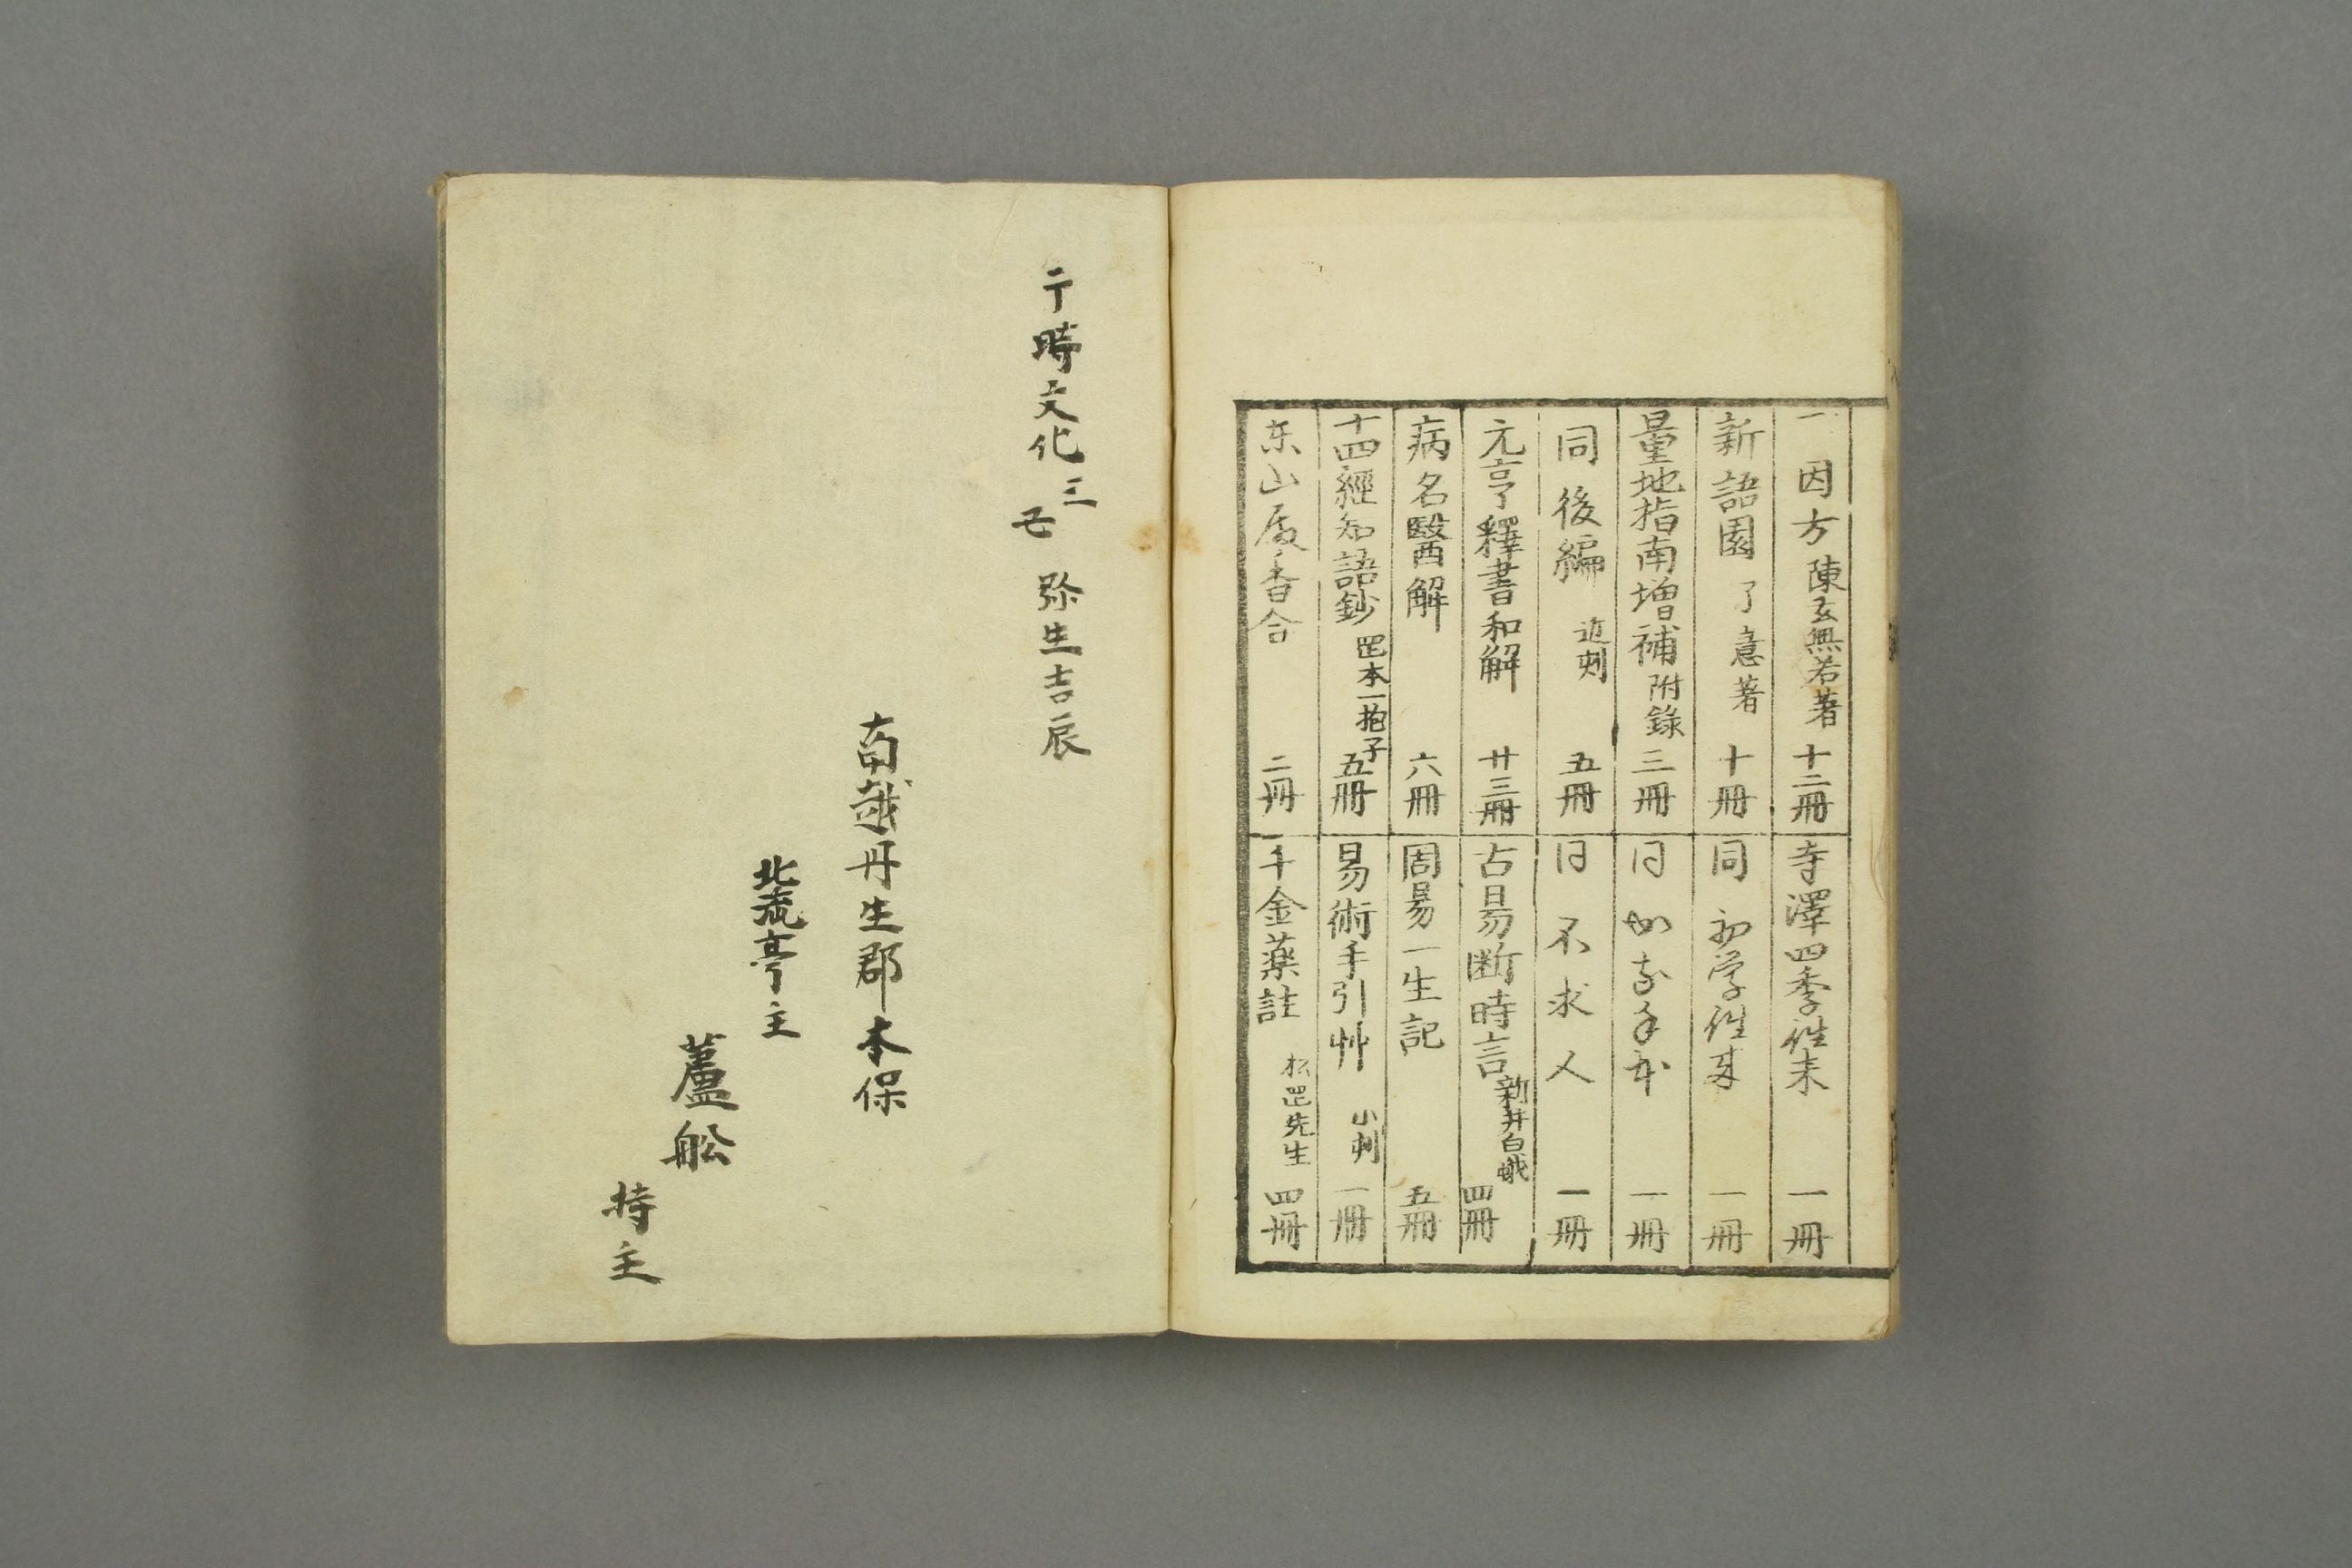 一因方 陳玄無若著 十二冊
新語園 了意著 十冊
量地指南増補 附録 三冊
同後編 近刻 五冊
元亨釋書和解 廿三冊
病名醫解 六冊
十四經和語鈔 岡本一抱子 五冊
东山殿香合 二冊
寺澤四季往来 一冊
同初学往来 一冊
同 一冊
同不求人 一冊
古易断時言 新井白蛾 四冊
周易一生記 五冊
易術手引艸 小刻 一冊
千金薬註 松岡先生 四冊
于時文化三
弥生吉辰
南越丹生郡本保
北亭主
蘆舩
持主